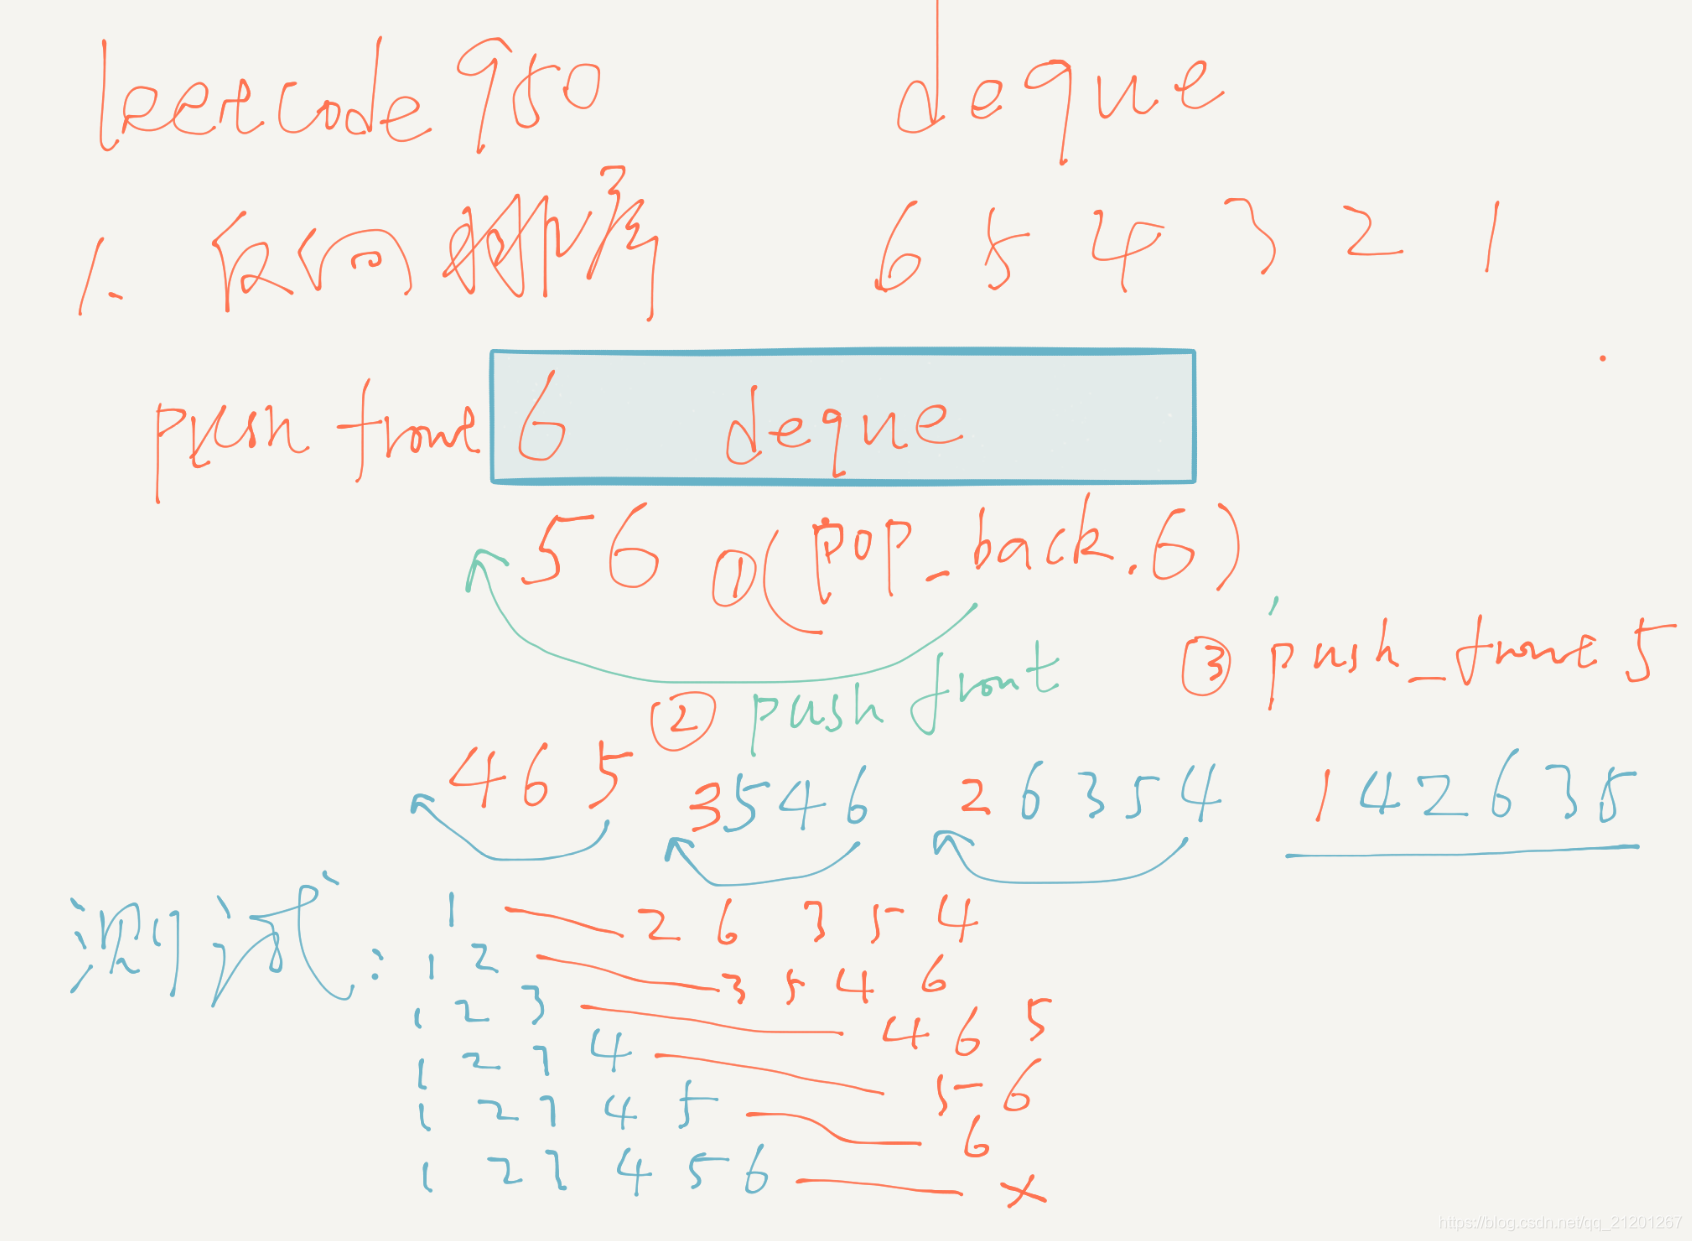 leetcode 950 deque
1. 反向排序 6 5 4 3 2 1
push front 6 deque
5 6 ①(pop_back.6)
② push front ③ push_front 5
4 6 5 3 5 4 6 2 6 3 5 4 1 4 2 6 3 5
测试:
1 2 6 3 5 4
1 2 3 5 4 6
1 2 3 4 6 5
1 2 3 4 5 6
1 2 3 4 5 6
1 2 3 4 5 6 ×
https://blog.csdn.net/qq_21201267